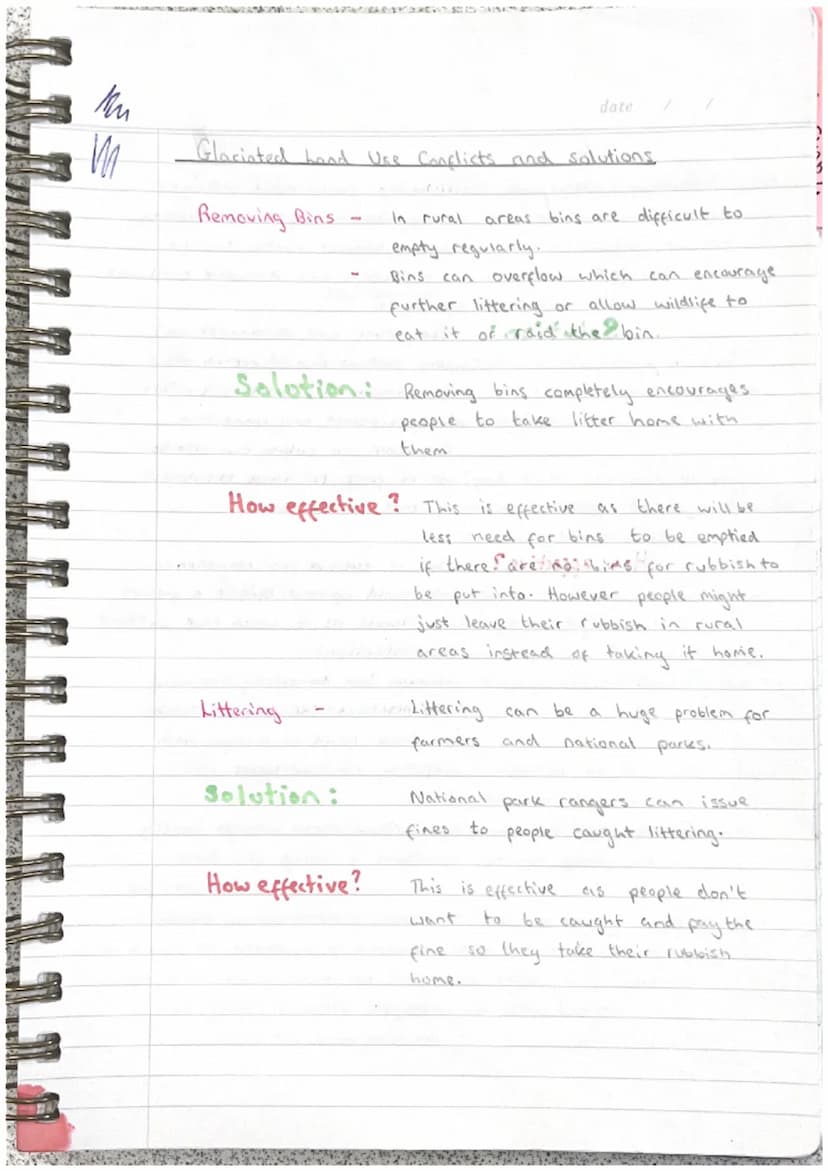 date / /
Glaciated Land Use Conflicts and solutions
Removing Bins - In rural areas bins are difficult to
empty regularly.
- Bins can overflow which can encourage
further littering or allow wildlife to
eat it or raid the bin.
Solution: Removing bins completely encourages
people to take litter home with
them
How effective? This is effective as there will be
less need for bins to be emptied
if there are no bins for rubbish to
be put into. However people might
just leave their rubbish in rural
areas instead of taking it home.
Littering - Littering can be a huge problem for
farmers and national parks.
Solution: National park rangers can issue
fines to people caught littering.
How effective? This is effective as people don't
want to be caught and pay the
fine so they take their rubbish
home.